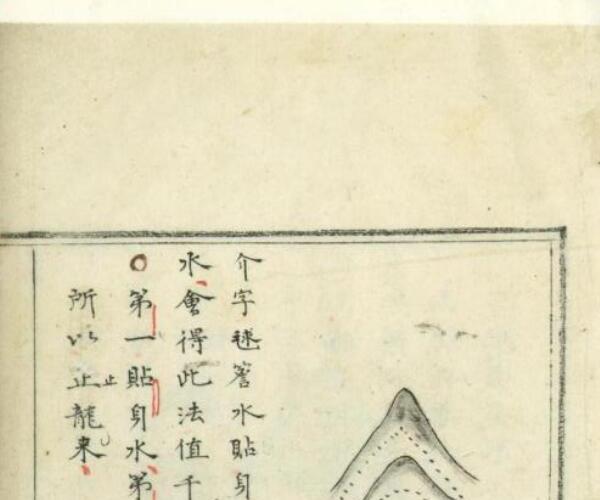 介字毬簷水貼身
水會得此法值千
○第一貼身水第
所以止龍来
止